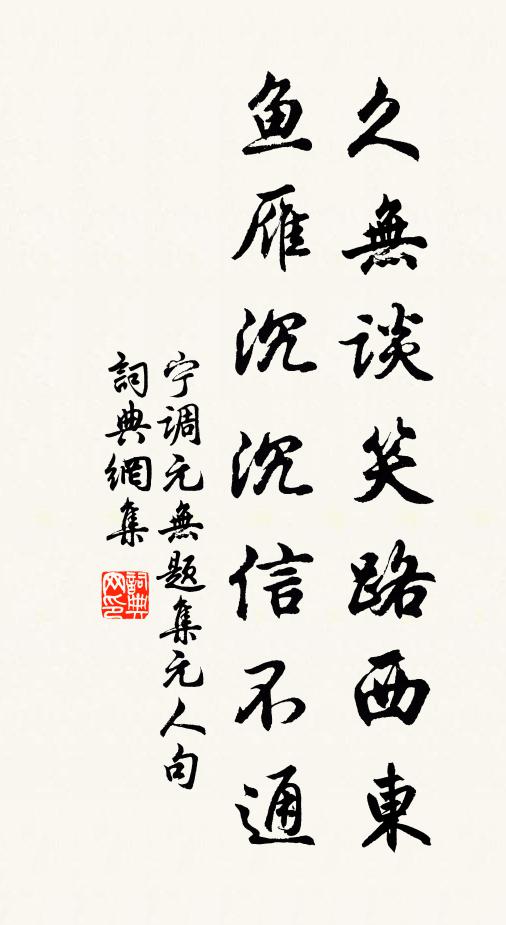 久無谈笑路西東
鱼雁沉沉信不通
宁调元無题集元人句
詞典網集
詞典網印